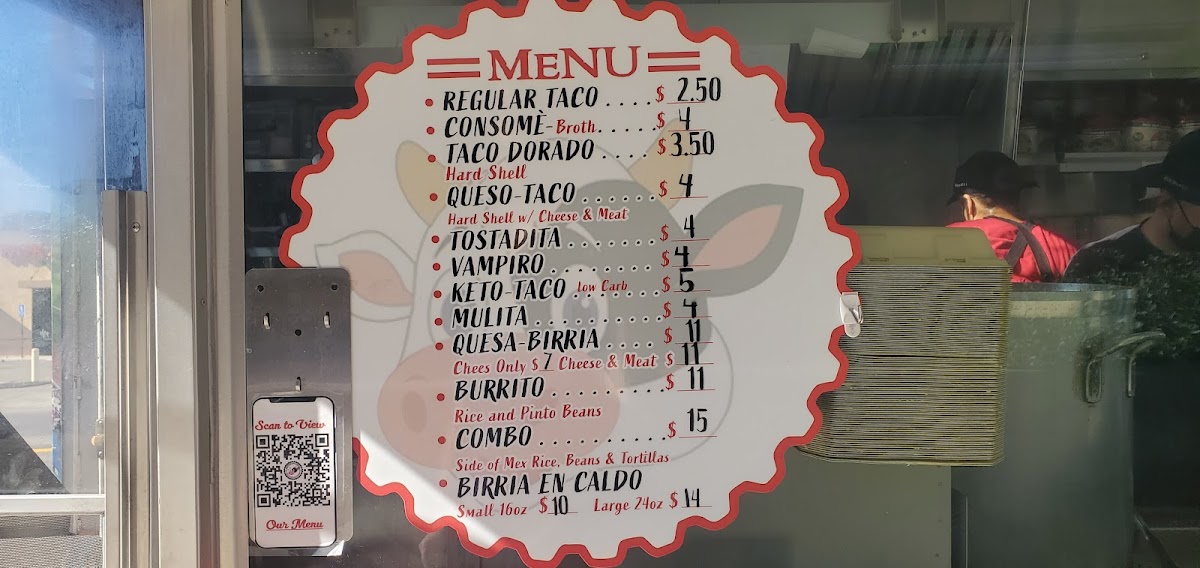 MENU
• REGULAR TACO .... $ 2.50
• CONSOMÈ-Broth...... $ 4
• TACO DORADO .... $ 3.50
Hard Shell
• QUESO-TACO ...... $ 4
Hard Shell w/ Cheese & Meat
• TOSTADITA ....... $ 4
• VAMPIRO ........ $ 4
• KETO-TACO Low Carb ...... $ 5
• MULITA .......... $ 4
• QUESA-BIRRIA .... $ 11
Chees Only $ 7 Cheese & Meat $ 11
• BURRITO ......... $ 11
Rice and Pinto Beans
• COMBO .......... $ 15
Side of Mex Rice, Beans & Tortillas
• BIRRIA EN CALDO
Small 16oz $ 10 Large 24oz $ 14
Scan to View
Our Menu